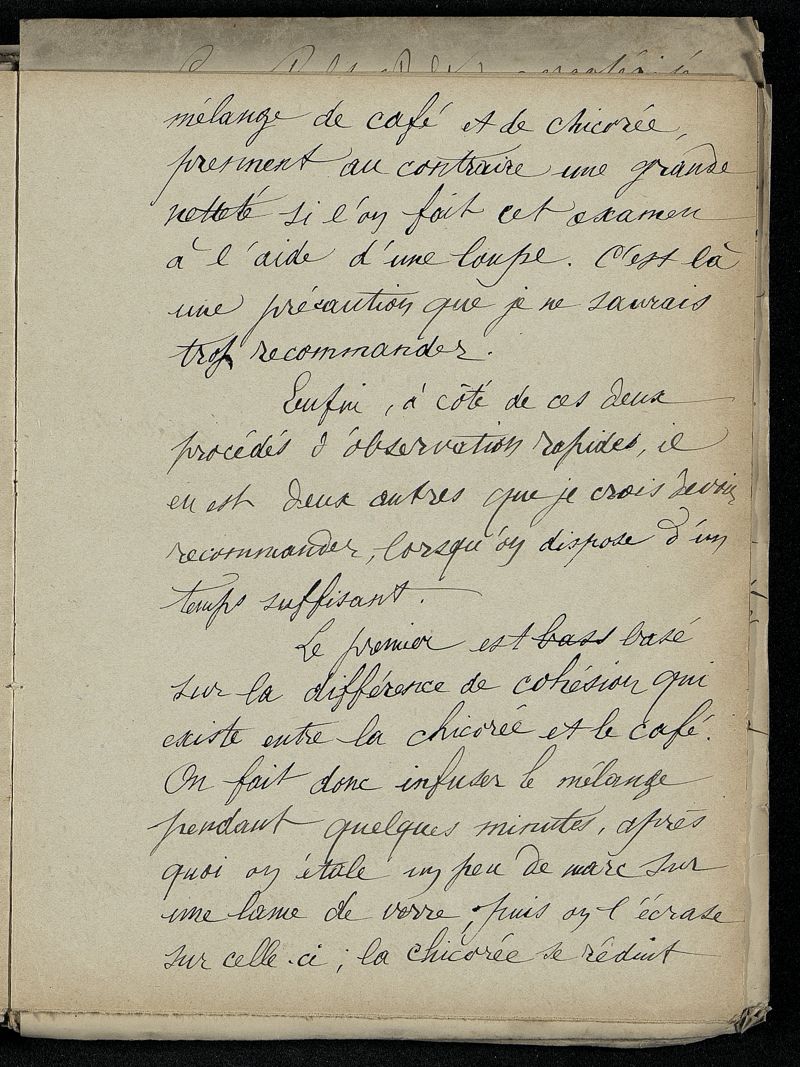 mélange de café et de chicorée,
prennent au contraire une grande
netteté si l'on fait cet examen
à l'aide d'une loupe. C'est là
une précaution que je ne saurais
trop recommander.
Enfin, à côté de ces deux
procédés d'observation rapides, il
en est deux autres que je crois devoir
recommander, lorsqu'on dispose d'un
temps suffisant.
Le premier est bass basé
sur la différence de cohésion qui
existe entre la chicorée et le café.
On fait donc infuser le mélange
pendant quelques minutes, après
quoi on étale un peu de marc sur
une lame de verre, puis on l'écrase
sur celle-ci ; la chicorée se réduit